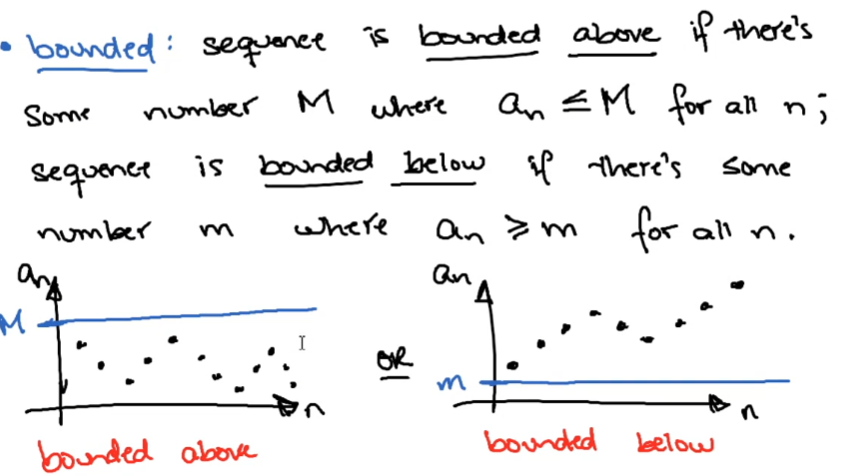 • bounded: sequence is bounded above if there's
some number M where aₙ ≤ M for all n;
sequence is bounded below if there's some
number m where aₙ ≥ m for all n.
aₙ
M
n
bounded above
OR
aₙ
m
n
bounded below